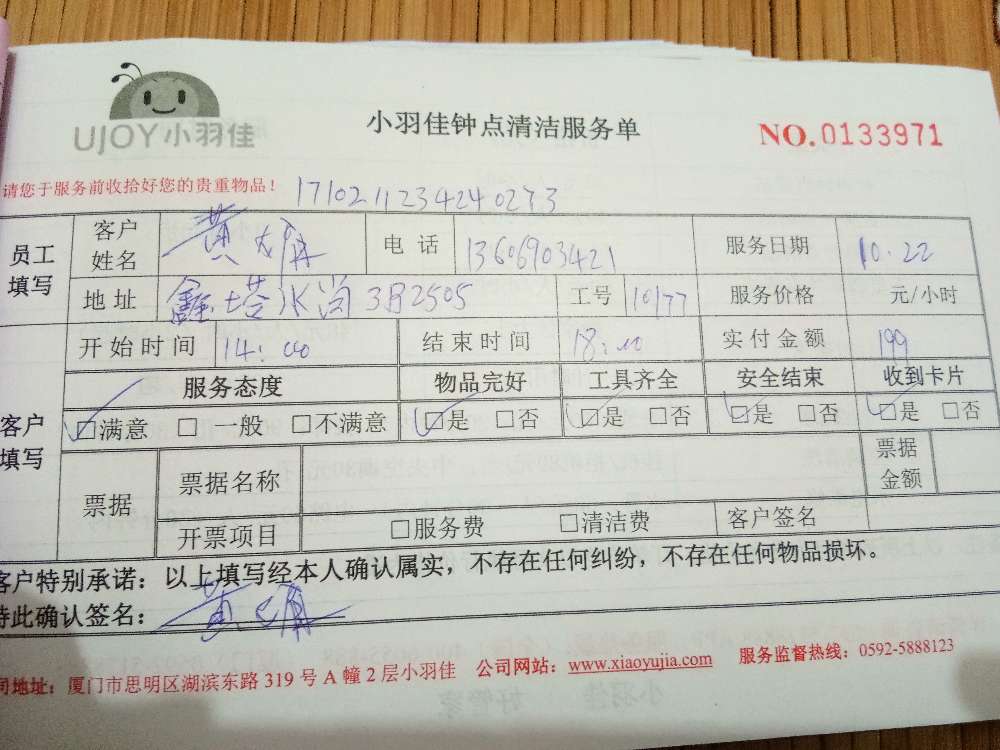 UJOY小羽佳
小羽佳钟点清洁服务单
NO.0133971
请您于服务前收拾好您的贵重物品！
1710211234240273
员工填写 客户姓名 黄 电话 13606903421 服务日期 10.22
地址 鑫塔水尚3B2505 工号 10177 服务价格 元/小时
开始时间 14:00 结束时间 18:00 实付金额 199
客户填写 服务态度 物品完好 工具齐全 安全结束 收到卡片
☑满意 □一般 □不满意 ☑是 □否 ☑是 □否 ☑是 □否 ☑是 □否
票据 票据名称 票据金额
开票项目 □服务费 □清洁费 客户签名
客户特别承诺：以上填写经本人确认属实，不存在任何纠纷，不存在任何物品损坏。
特此确认签名：黄
司地址：厦门市思明区湖滨东路319号A幢2层小羽佳 公司网站：www.xiaoyujia.com 服务监督热线：0592-5888123